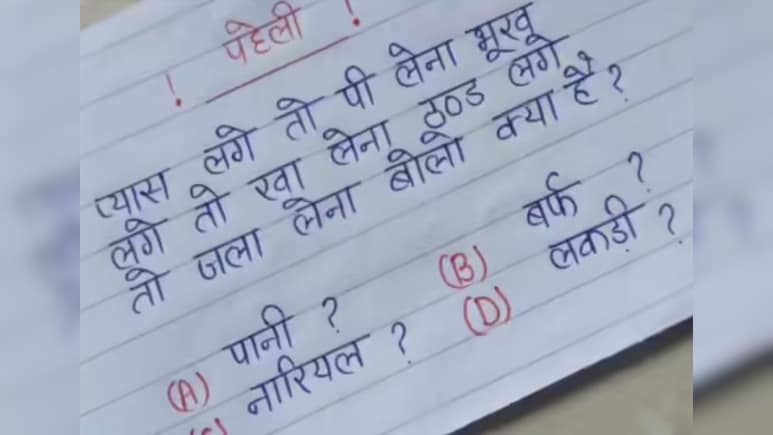 ! पहेली !
प्यास लगे तो पी लेना भूख
लगे तो खा लेना ठण्ड लगे
तो जला लेना बोलो क्या है ?
(A) पानी ? (B) बर्फ ?
नारियल ? (D) लकड़ी ?